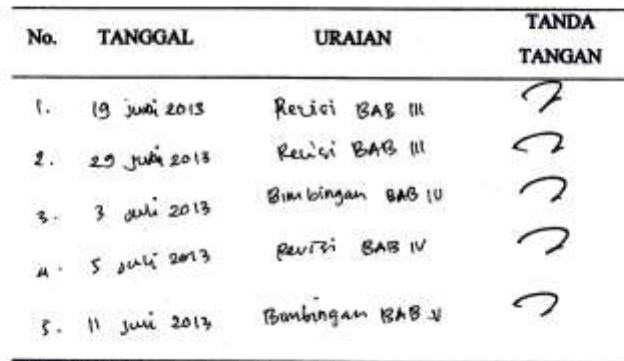 No. TANGGAL URAIAN TANDA TANGAN
1. 19 juni 2013 Revisi BAB III
2. 29 juni 2013 Revisi BAB III
3. 3 juli 2013 Bimbingan BAB IV
4. 5 juli 2013 Revisi BAB IV
5. 11 juni 2013 Bimbingan BAB V